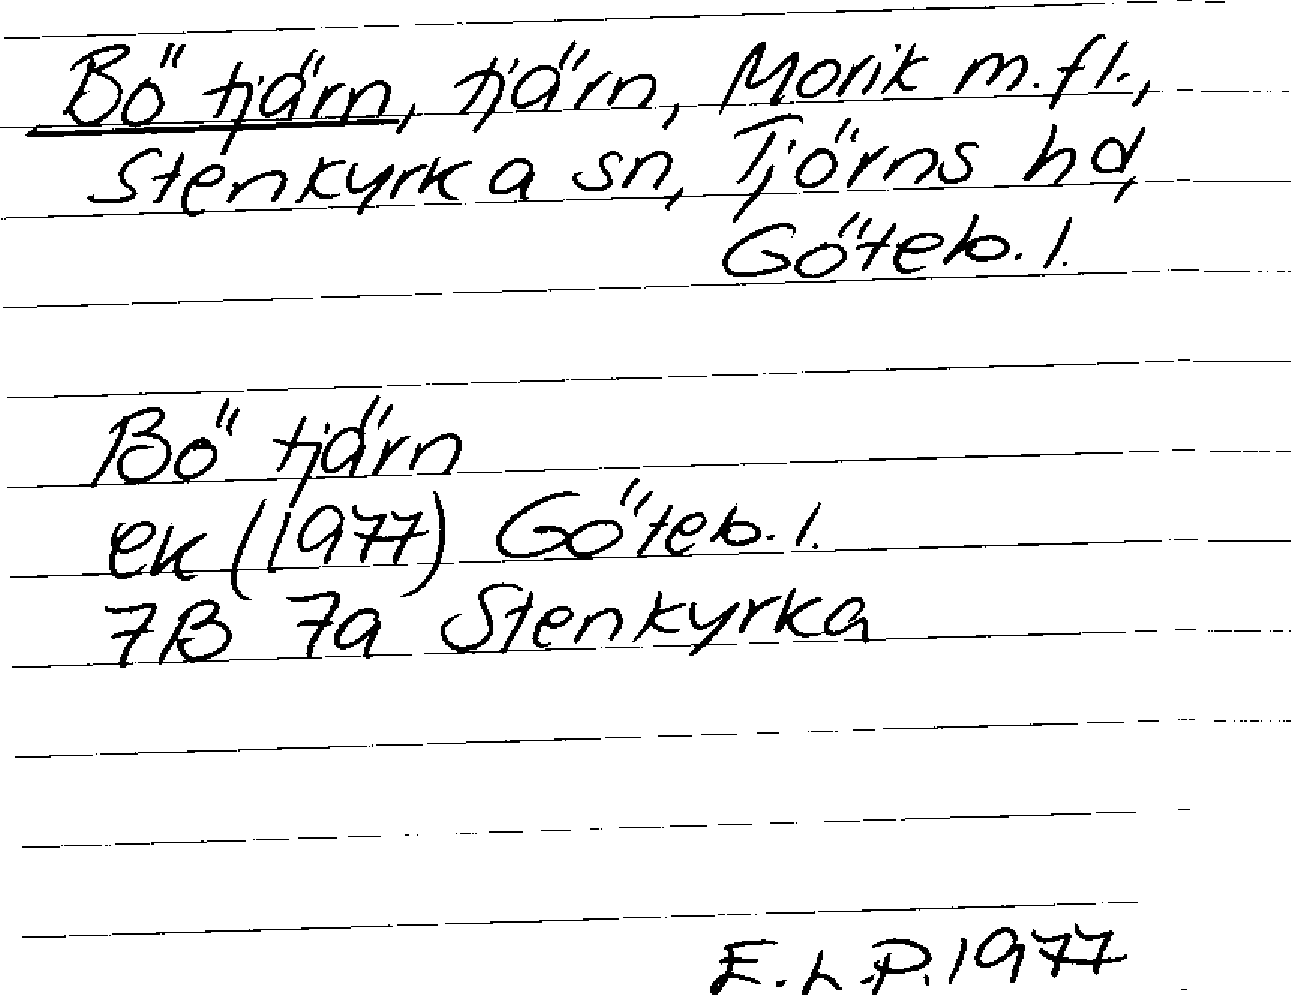 Bö tjärn, tjärn, Morik m.fl.,
Stenkyrka sn, Tjörns hd,
Göteb. l.
Bö tjärn
ek (1977) Göteb. l.
7B 7a Stenkyrka
E.L.P. 1977